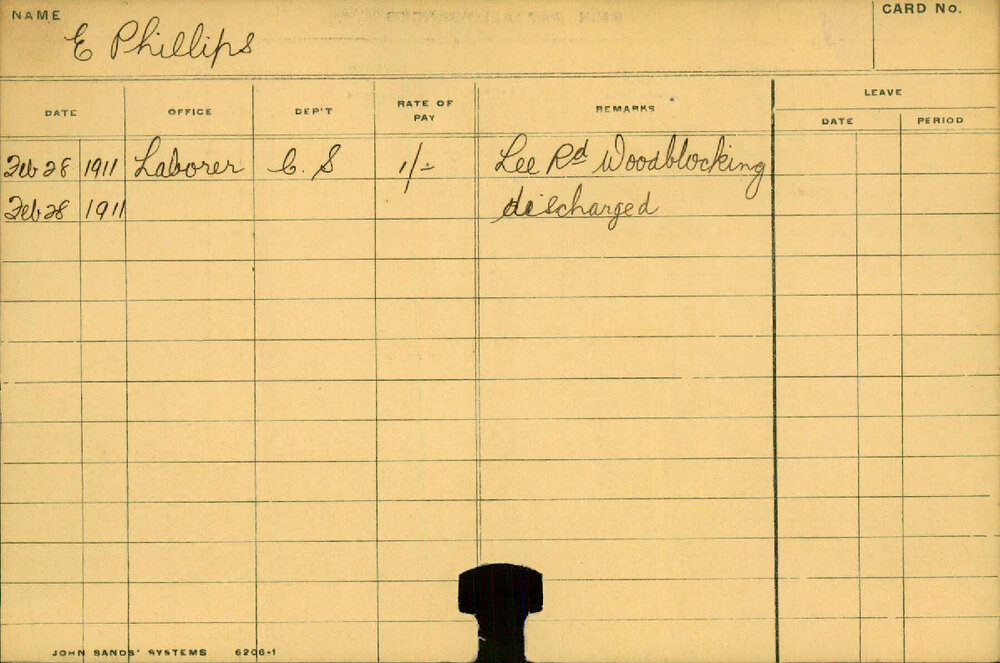 NAME E Phillips CARD No.
DATE OFFICE DEP'T RATE OF PAY REMARKS LEAVE
DATE PERIOD
Feb 28 1911 Laborer C. S 1/- Lee Rd Woodblocking
Feb 28 1911 discharged
JOHN SANDS' SYSTEMS 6206-1